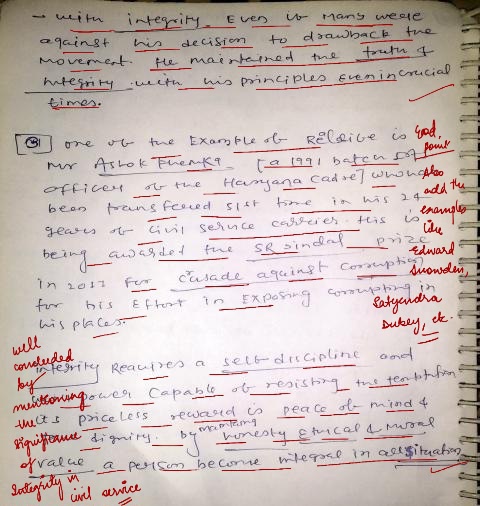 with integrity. Even if many were
against his decision to drawback the
movement. He maintained the truth &
integrity with his principles even in crucial
times.
3 One of the Example of is
Mr Ashok Khemka [a 1991 batch
officer of the Haryana cadre] who has
been transfered 51st time in his 24
years of civil service carrier. His is
being awarded the SR Jindal prize
in 2011 for crusade against corruption
for his effort in exposing corrupting in
his places.
Good point
Also add the examples like Edward Snowden, Satyendra Dubey, etc.
integrity Requires a self discipline and
power capable of resisting the temptation
its priceless reward is peace of mind &
dignity. by maintaing honesty ethical & moral
value a person become integral in all situation
well concluded by mentioning the significance of Integrity in civil service